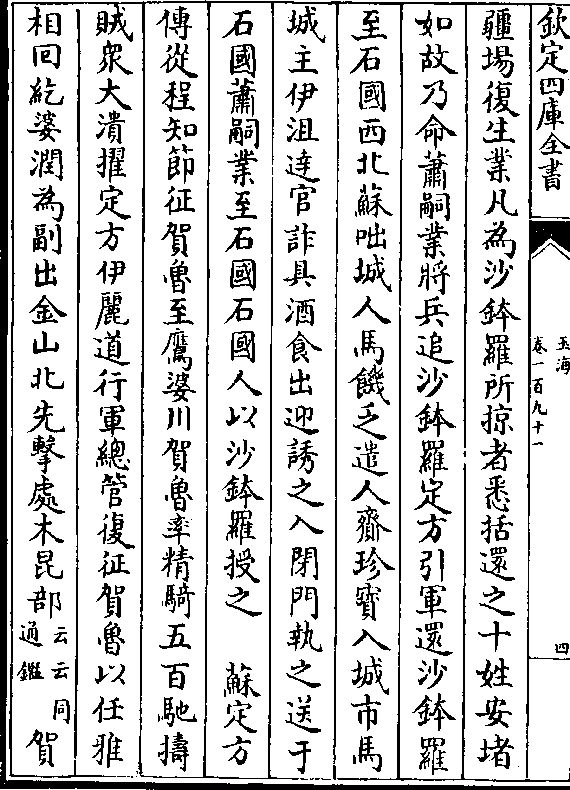 欽定四庫全書
玉海
卷一百九十一
四
疆埸復生業凡為沙鉢羅所掠者悉括還之十姓安堵
如故乃命蕭嗣業將兵追沙鉢羅定方引軍還沙鉢羅
至石國西北蘇咄城人馬饑乏遣人齎珍寶入城市馬
城主伊沮逹官詐具酒食出迎誘之入閉門執之送于
石國蕭嗣業至石國石國人以沙鉢羅授之　蘇定方
傳從程知節征賀魯至鷹婆川賀魯率精騎五百馳擣
賊衆大潰擢定方伊麗道行軍總管復征賀魯以任雅
相回紇婆潤為副出金山北先擊處木昆部云云同通鑑賀